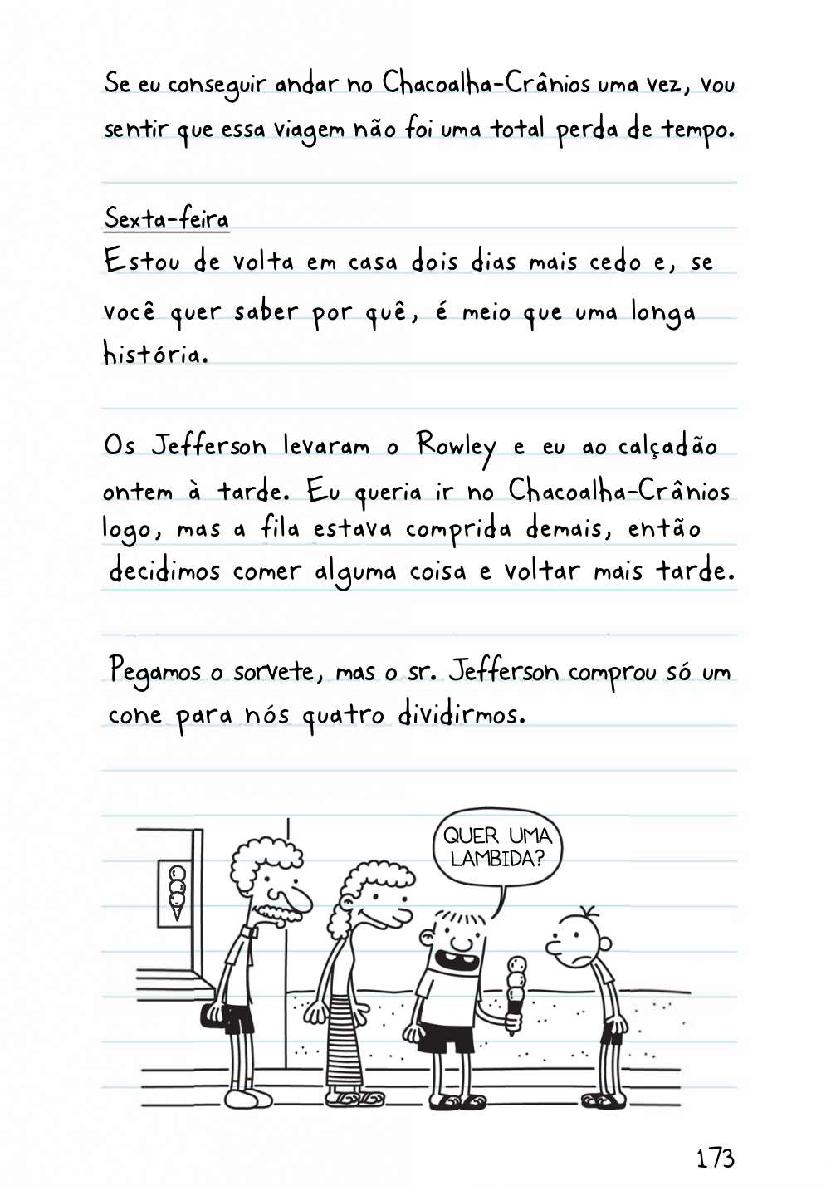 Se eu conseguir andar no Chacoalha-Crânios uma vez, vou
sentir que essa viagem não foi uma total perda de tempo.
Sexta-feira
Estou de volta em casa dois dias mais cedo e, se
você quer saber por quê, é meio que uma longa
história.
Os Jefferson levaram o Rowley e eu ao calçadão
ontem à tarde. Eu queria ir no Chacoalha-Crânios
logo, mas a fila estava comprida demais, então
decidimos comer alguma coisa e voltar mais tarde.
Pegamos o sorvete, mas o sr. Jefferson comprou só um
cone para nós quatro dividirmos.
QUER UMA
LAMBIDA?
173